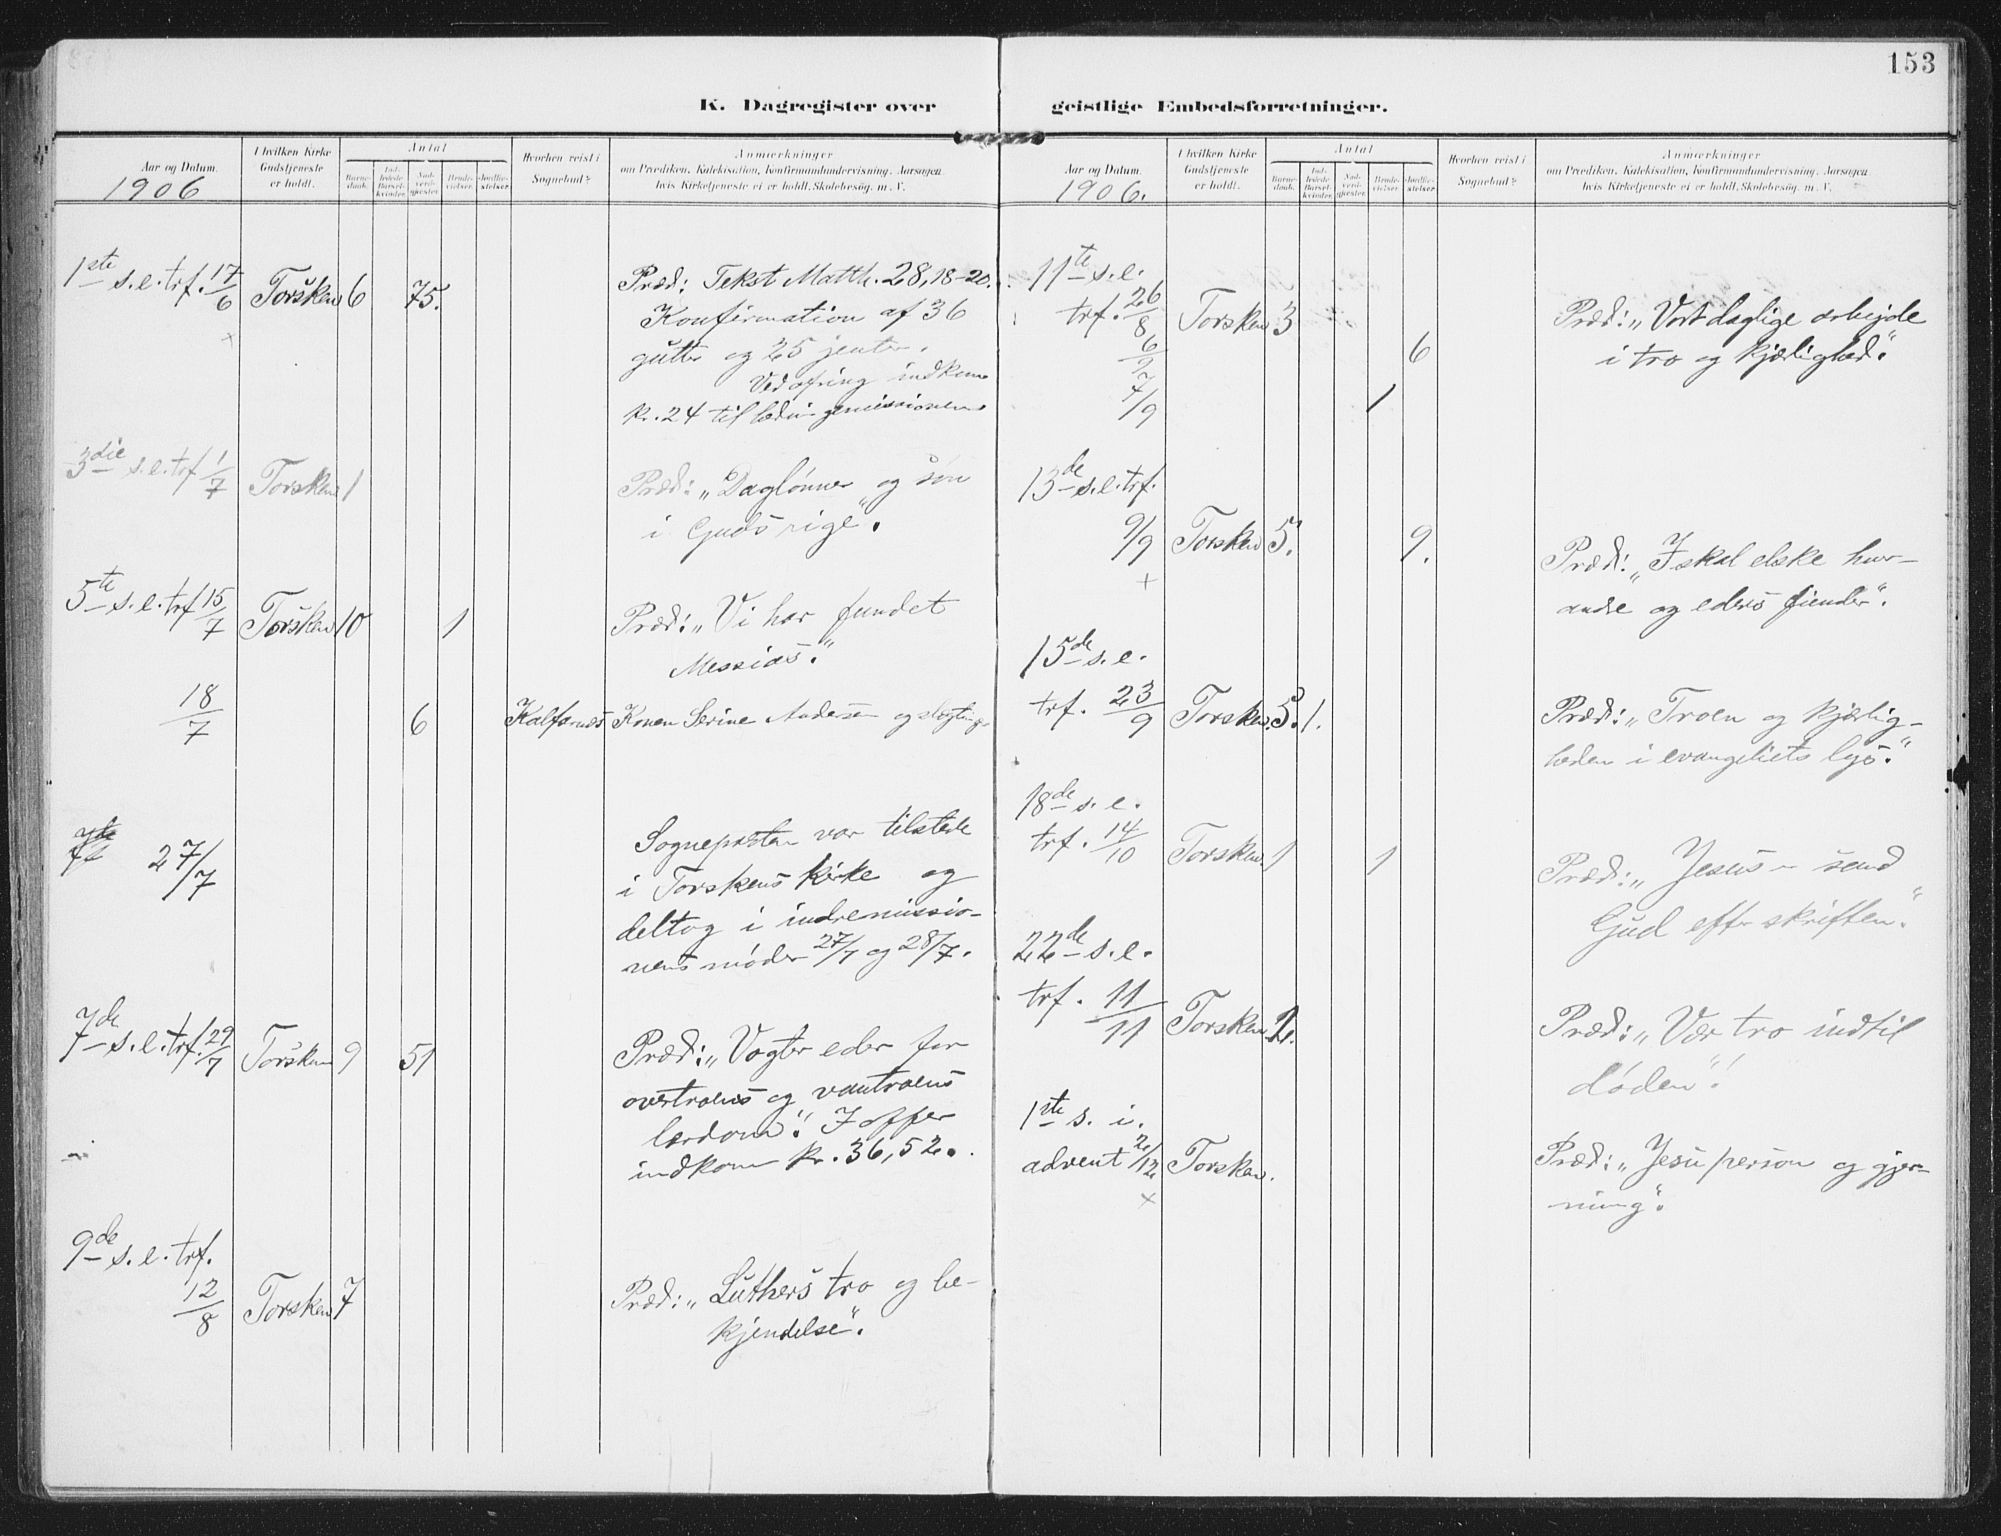 153
K. Dagregister over
Aar og Datum.
1906
I hvilken Kirke
Gudstjeneste
er holdt.
Antal
Barne-
daab.
Ind-
ledede
Barsel-
kvinder.
Nad-
verd-
gjester.
Brude-
vielser.
Jordfæ-
stelser.
Hvorhen reist i
Sognebud?
Anmærkninger
om Prædiken, Katekisation, Konfirmandundervisning, Aarsagen
hvis Kirketjeneste ei er holdt, Skolebesøg, m. V.
1ste s. e. trf. 17/6 Torsken 6 75. Præd: Tekst Matth. 28,18-20.
Konfirmation af 36
gutter og 25 jenter.
Ved ofring indkom
kr. 24 til hedningemissionen
3die s. e. trf 1/7 Torsken 1 Præd: „Daglønner og søn
i Guds rige“.
5te s. e. trf 15/7 Torsken 10 1 Præd: „Vi har fundet
Messias.“
18/7 6 Kalfarnes Konen Serine Andersen og slegtning.
27/7 Sogneprsten var tilstede
i Torskens kirke og
deltog i indremissio-
nens møder 27/7 og 28/7.
7de s. e. trf. 29/7 Torsken 9 51 Præd: „Vogter eder for
overtroens og vantroens
lærdom“. I offer
indkom kr. 36,52.
9de s. e. trf.
12/8 Torsken 7 Præd: „Luthers tro og be-
kjendelse“.
geistlige Embedsforretninger.
Aar og Datum.
1906.
I hvilken Kirke
Gudstjeneste
er holdt.
Antal
Barne-
daab.
Ind-
ledede
Barsel-
kvinder.
Nad-
verd-
gjester.
Brude-
vielser.
Jordfæ-
stelser.
Hvorhen reist i
Sognebud?
Anmærkninger
om Prædiken, Katekisation, Konfirmandundervisning, Aarsagen
hvis Kirketjeneste ei er holdt, Skolebesøg, m. V.
11te s. e.
trf. 26/8 Torsken 3 Præd: „Vort daglige arbejde
6/9 6 i tro og kjærlighed“.
7/9 1
13de s. e. trf.
9/9 Torsken 5. 9. Præd: „I skal elske hver-
andre og eders fiender“.
15de s. e.
trf. 23/9 Torsken 5. 1. Præd: „Troen og kjærlig-
heden i evangeliets lys“.
18de s. e.
trf. 14/10 Torsken 1 1 Præd: „Jesus – sand
Gud efter skriften“.
22de s. e.
trf. 11/11 Torsken 2. Præd: „Vær tro indtil
døden“!
1ste s. i.
advent 2/12 Torsken. Præd: „Jesu person og gjer-
ning“.